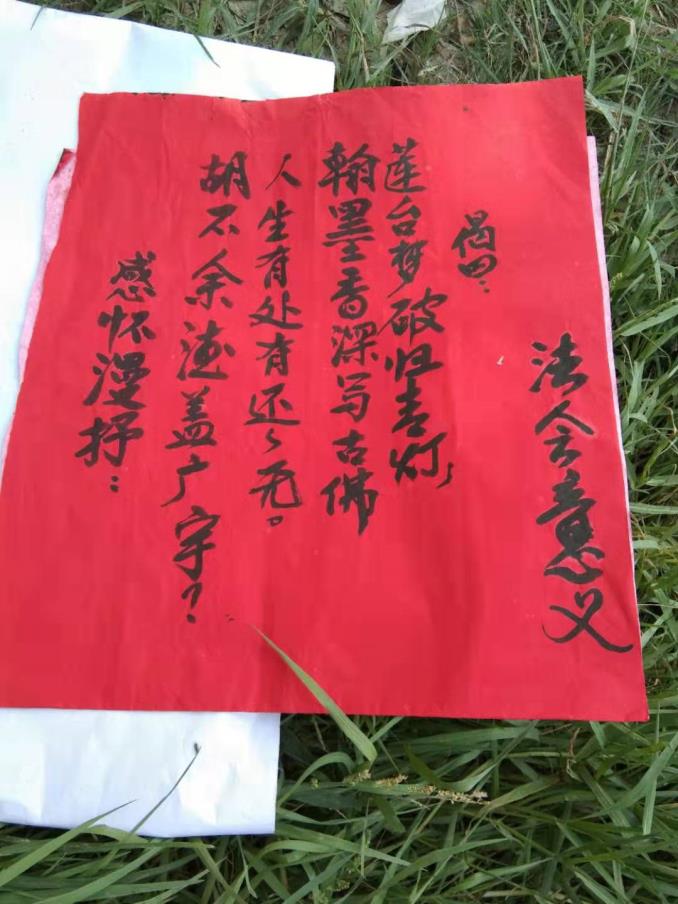 法会意义
偈曰：
莲台梦破归青灯，
翰墨香深写古佛
人生有处有还々无。
胡不余德盖广宇？
感怀漫抒：